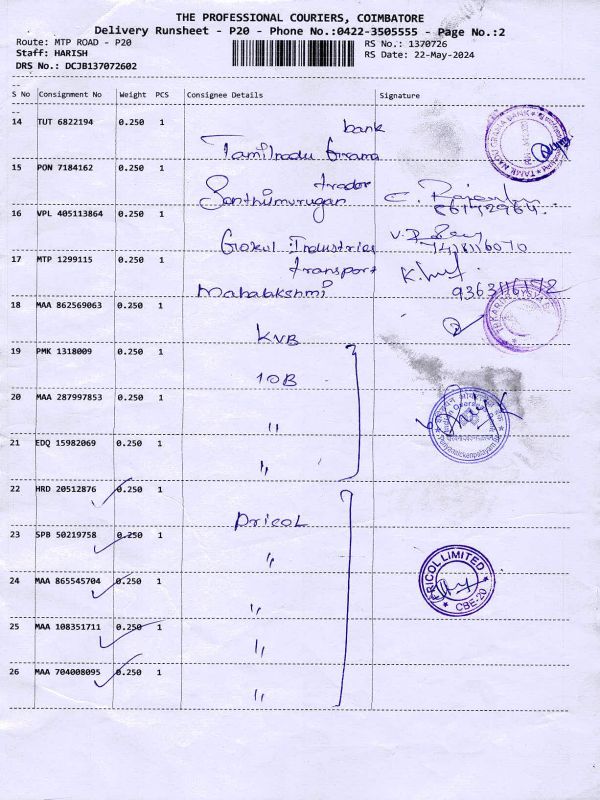 THE PROFESSIONAL COURIERS, COIMBATORE
Delivery Runsheet - P20 - Phone No.:0422-3505555 - Page No.:2
Route: MTP ROAD - P20 RS No.: 1370726
Staff: HARISH RS Date: 22-May-2024
DRS No.: DCJB137072602
S No Consignment No Weight PCS Consignee Details Signature
14 TUT 6822194 0.250 1 bank
Tamilnadu Grama
15 PON 7184162 0.250 1 trador
Santhimurugan
16 VPL 405113864 0.250 1
Gokul Industries
17 MTP 1299115 0.250 1 transport
Mahalakshmi 9363116172
18 MAA 862569063 0.250 1
KVB
19 PMK 1318009 0.250 1
IOB
20 MAA 287997853 0.250 1
"
21 EDQ 15982069 0.250 1
"
22 HRD 20512876 0.250 1
Pricol
23 SPB 50219758 0.250 1
"
24 MAA 865545704 0.250 1
"
25 MAA 108351711 0.250 1
"
26 MAA 704008095 0.250 1
"
PRICOL LIMITED.
CBE-20